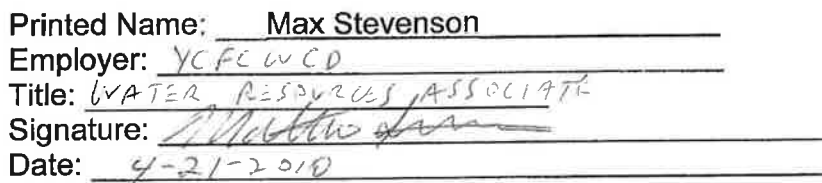 Printed Name: Max Stevenson
Employer: YCFCWCD
Title: WATER RESOURCES ASSOCIATE
Signature:
Date: 4-21-2010